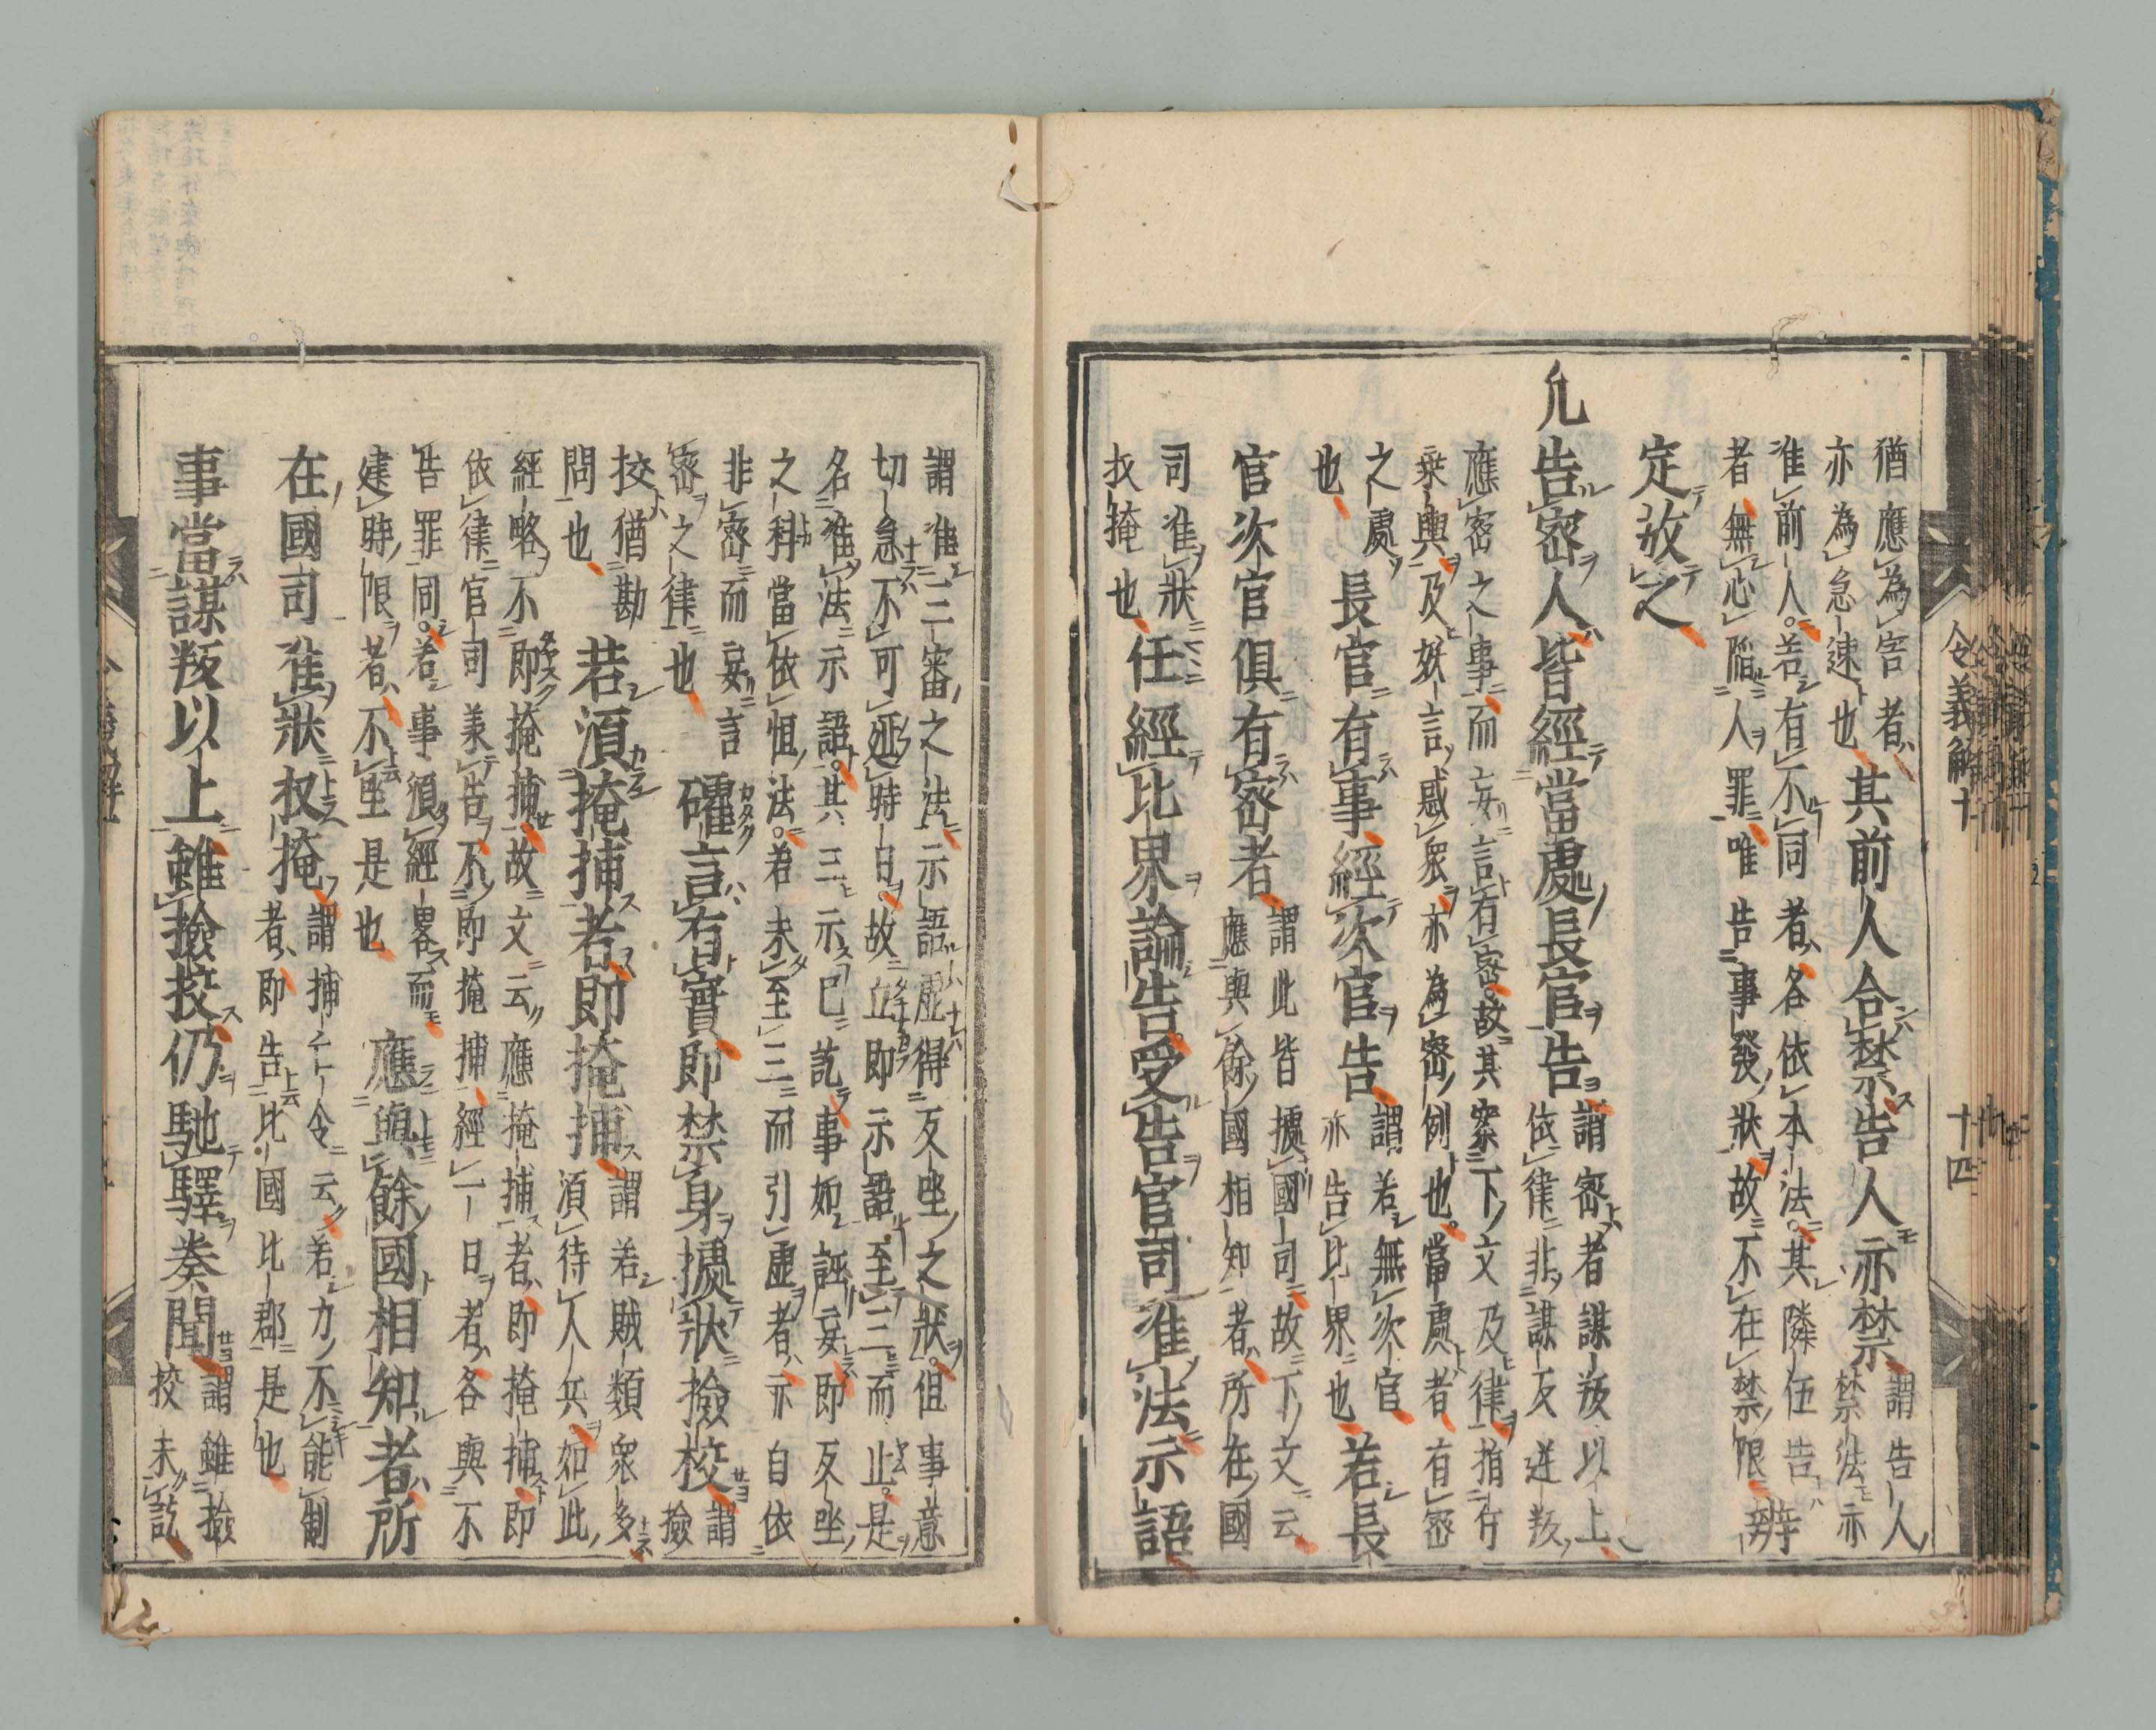 令義解十　十四
猶應為害者
亦為急速也
其前人合禁告人亦禁
謂告人
禁法亦
准前人若有不同者各依本法其隣伍告
者無心陥人罪唯告事發狀故不在禁限
辨
定放之
凡告密人皆經當處長官告
謂密者謀叛以上
依律非謀反逆叛
應密之事而妄言有密故其案下文及律指斥
乗輿及妖言惑衆亦為密例也當處者有密
之處
也
長官有事經次官告
謂若無次官
亦告比界也
若長
官次官俱有密者
謂此皆據國司故下文云
應與餘國相知者所在國
司准狀
收掩也
任經比界論告受告官司准法示語
謂准三審之法示語虚得反坐之狀但事意
切急不可延時日故立即示語至三而止是
名准法示語其三示已訖事如誣妄即反坐
之科當依恒法若未至三而引虚者亦自依
非密而妄言
密之律也
確言有實即禁身據狀撿校
謂
撿
挍猶勘
問也
若須掩捕者即掩捕
謂若賊類衆多
須待人兵如此
經略不即掩捕故文云應掩捕者即掩捕即
依律官司兼告不即掩捕經一日者各與不
告罪同若事須經畧而
違時限者不坐是也
應與餘國相知者所
在國司准狀收掩
謂捕亡令云若力不能制
者即告比國比郡是也
事當謀叛以上雖撿挍仍馳驛奏聞
謂雖撿
挍未訖